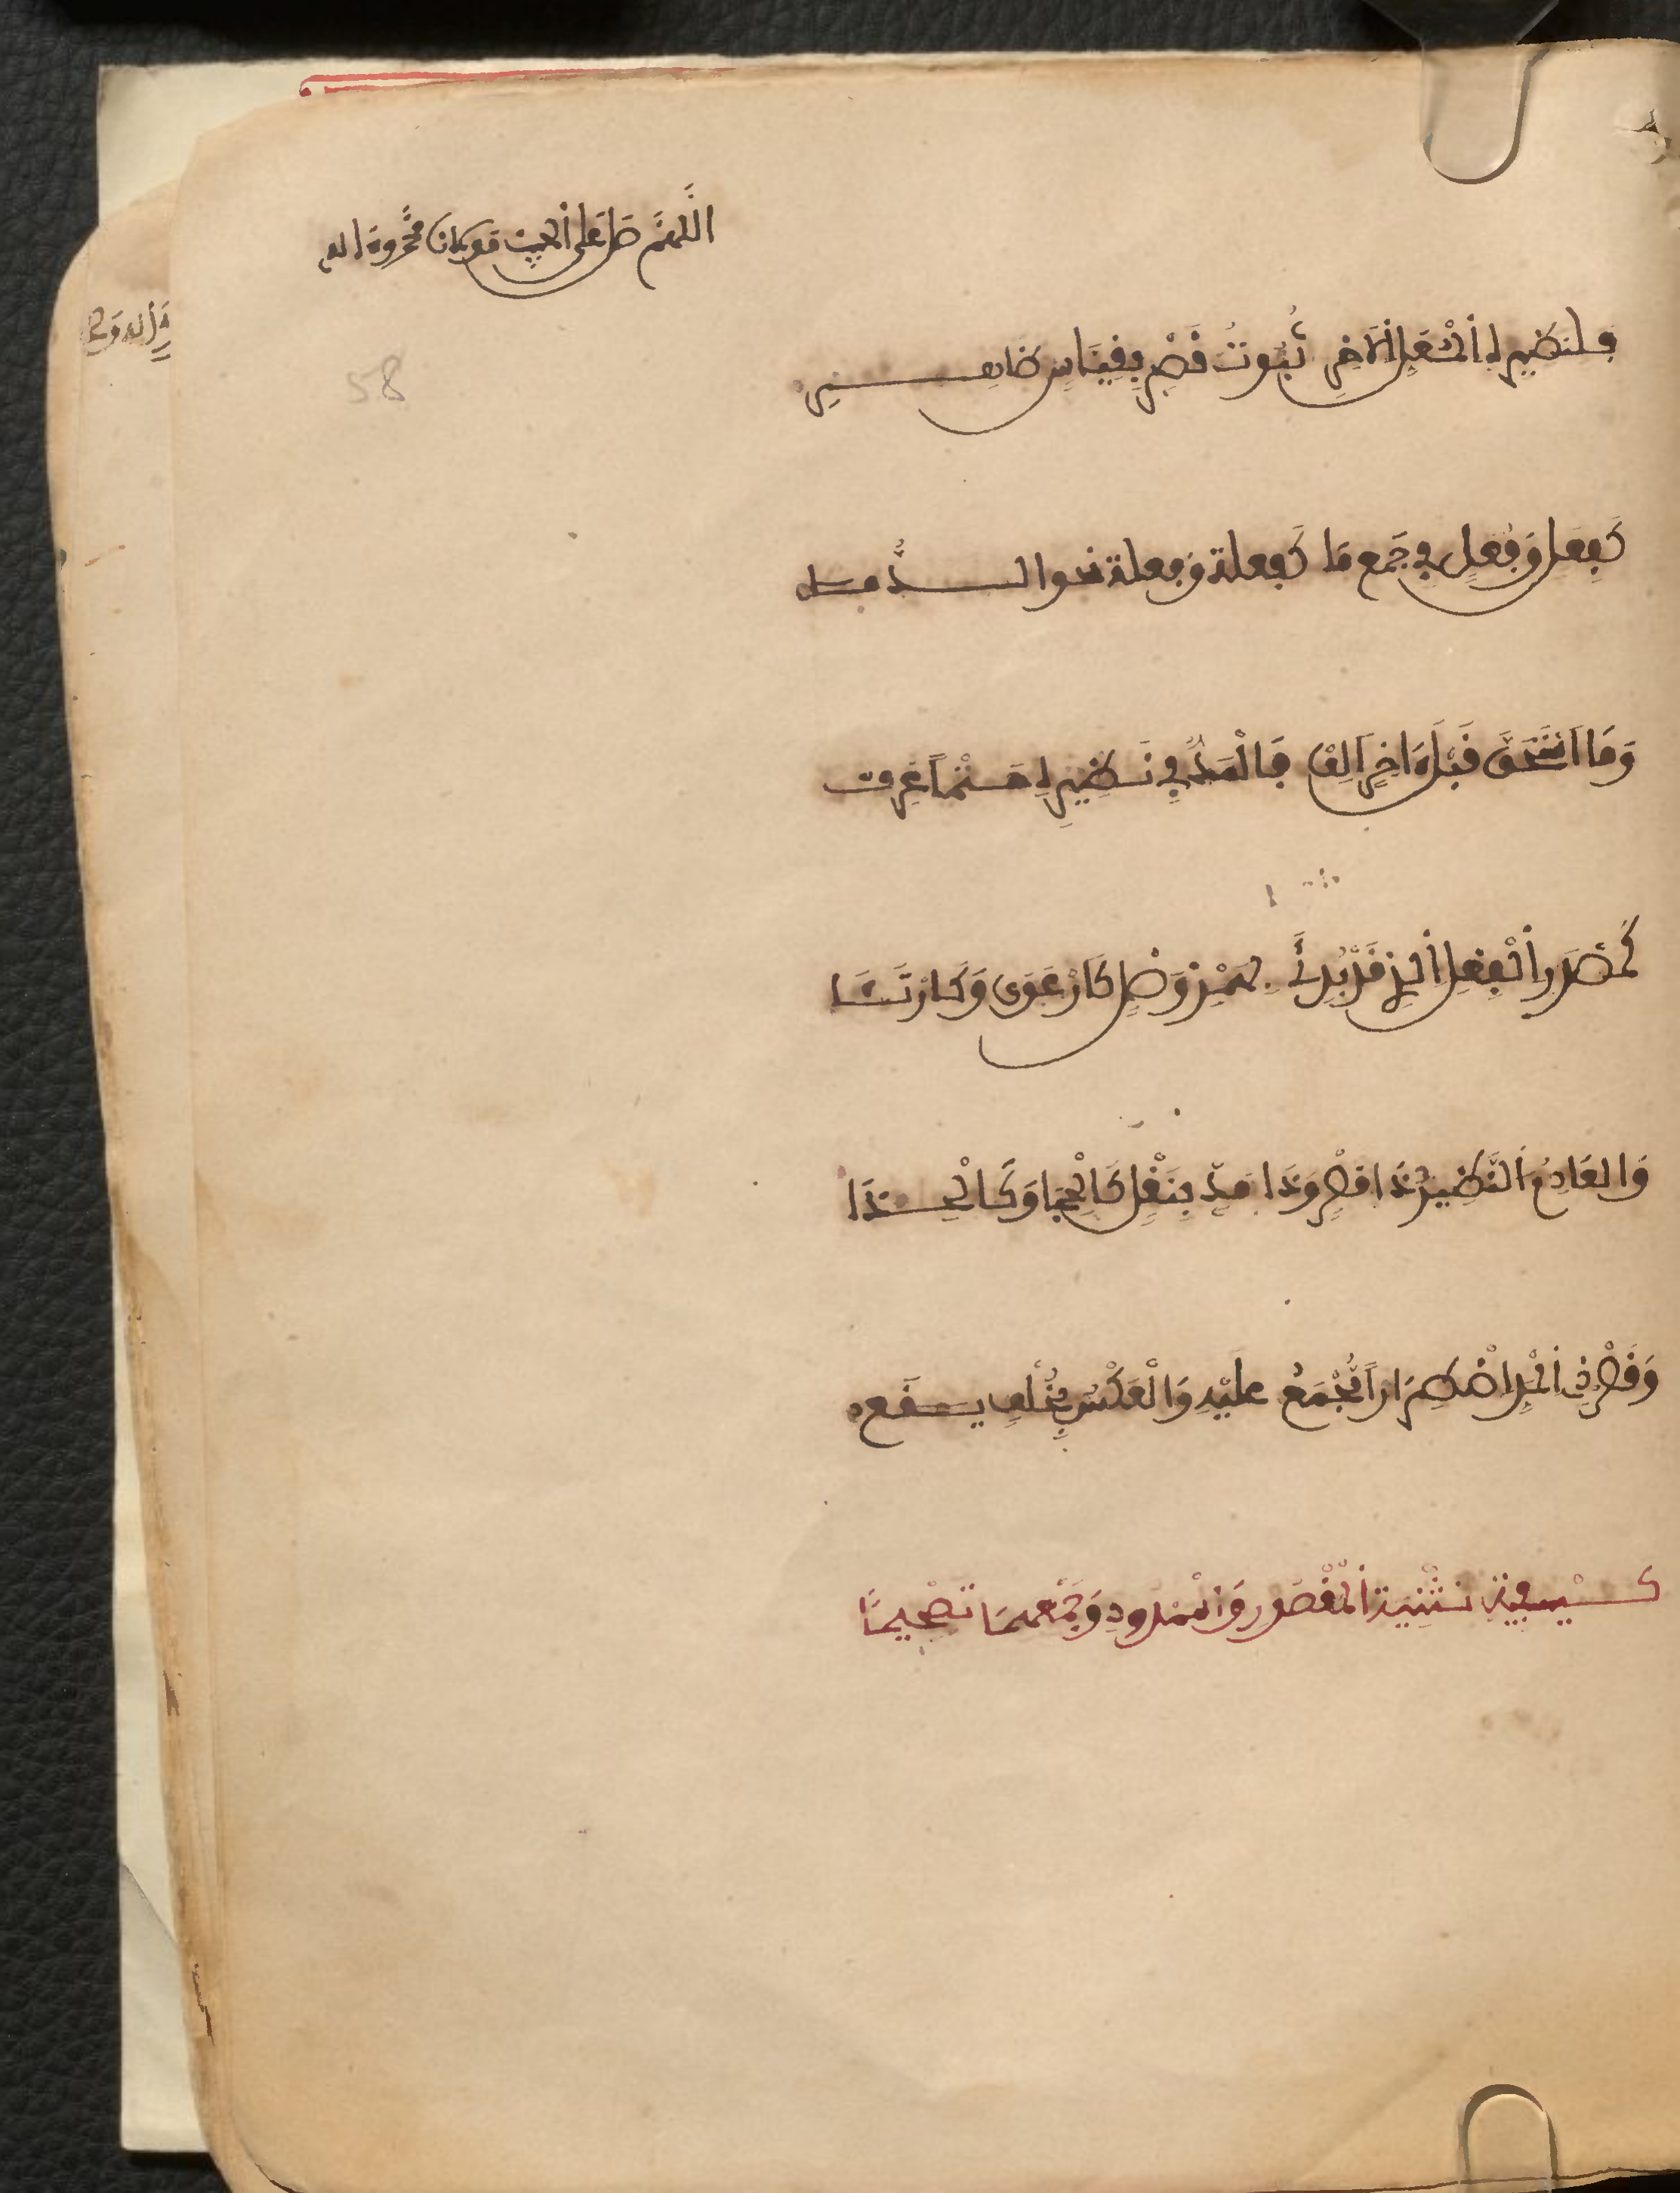 اللهم صل على الحبيب
فلنظيره المعل الاخر ثبوت قصر بقياس ظاهر
كفعل وفعل في جمع ما كفعلة وفعلة نحو الدمى
وَمَا اسْتَحَقَّ قَبْلَ ءَاخِرٍ اَلِفْ فَالْمَدُّ فِي نَظِيرِهِ حَتْماً عُرِف
كَمَصْدَرِ الْفِعْلِ الَّذِي قَدْ بُدِئَا بِهَمْزِ وَصْلٍ كَارْعَوَى وَكَارْتَئَا
وَالعَادِمُ النَّظِيرِ ذَا قَصْرٍ وَذَا مَدٍّ بِنَقْلٍ كَالْحِجَا وَكَالْحِذَا
وَقَصْرُ ذِي الْمَدِّ اضْطِرَاراً مُجْمَعٌ عَلَيْهِ وَالْعَكْسُ بِخُلْفٍ يَقَعُ
كَيْفِيَّةُ تَثْنِيَةِ الْمَقْصُورِ وَالْمَمْدُودِ وَجَمْعِهِمَا تَصْحِيحًا
58